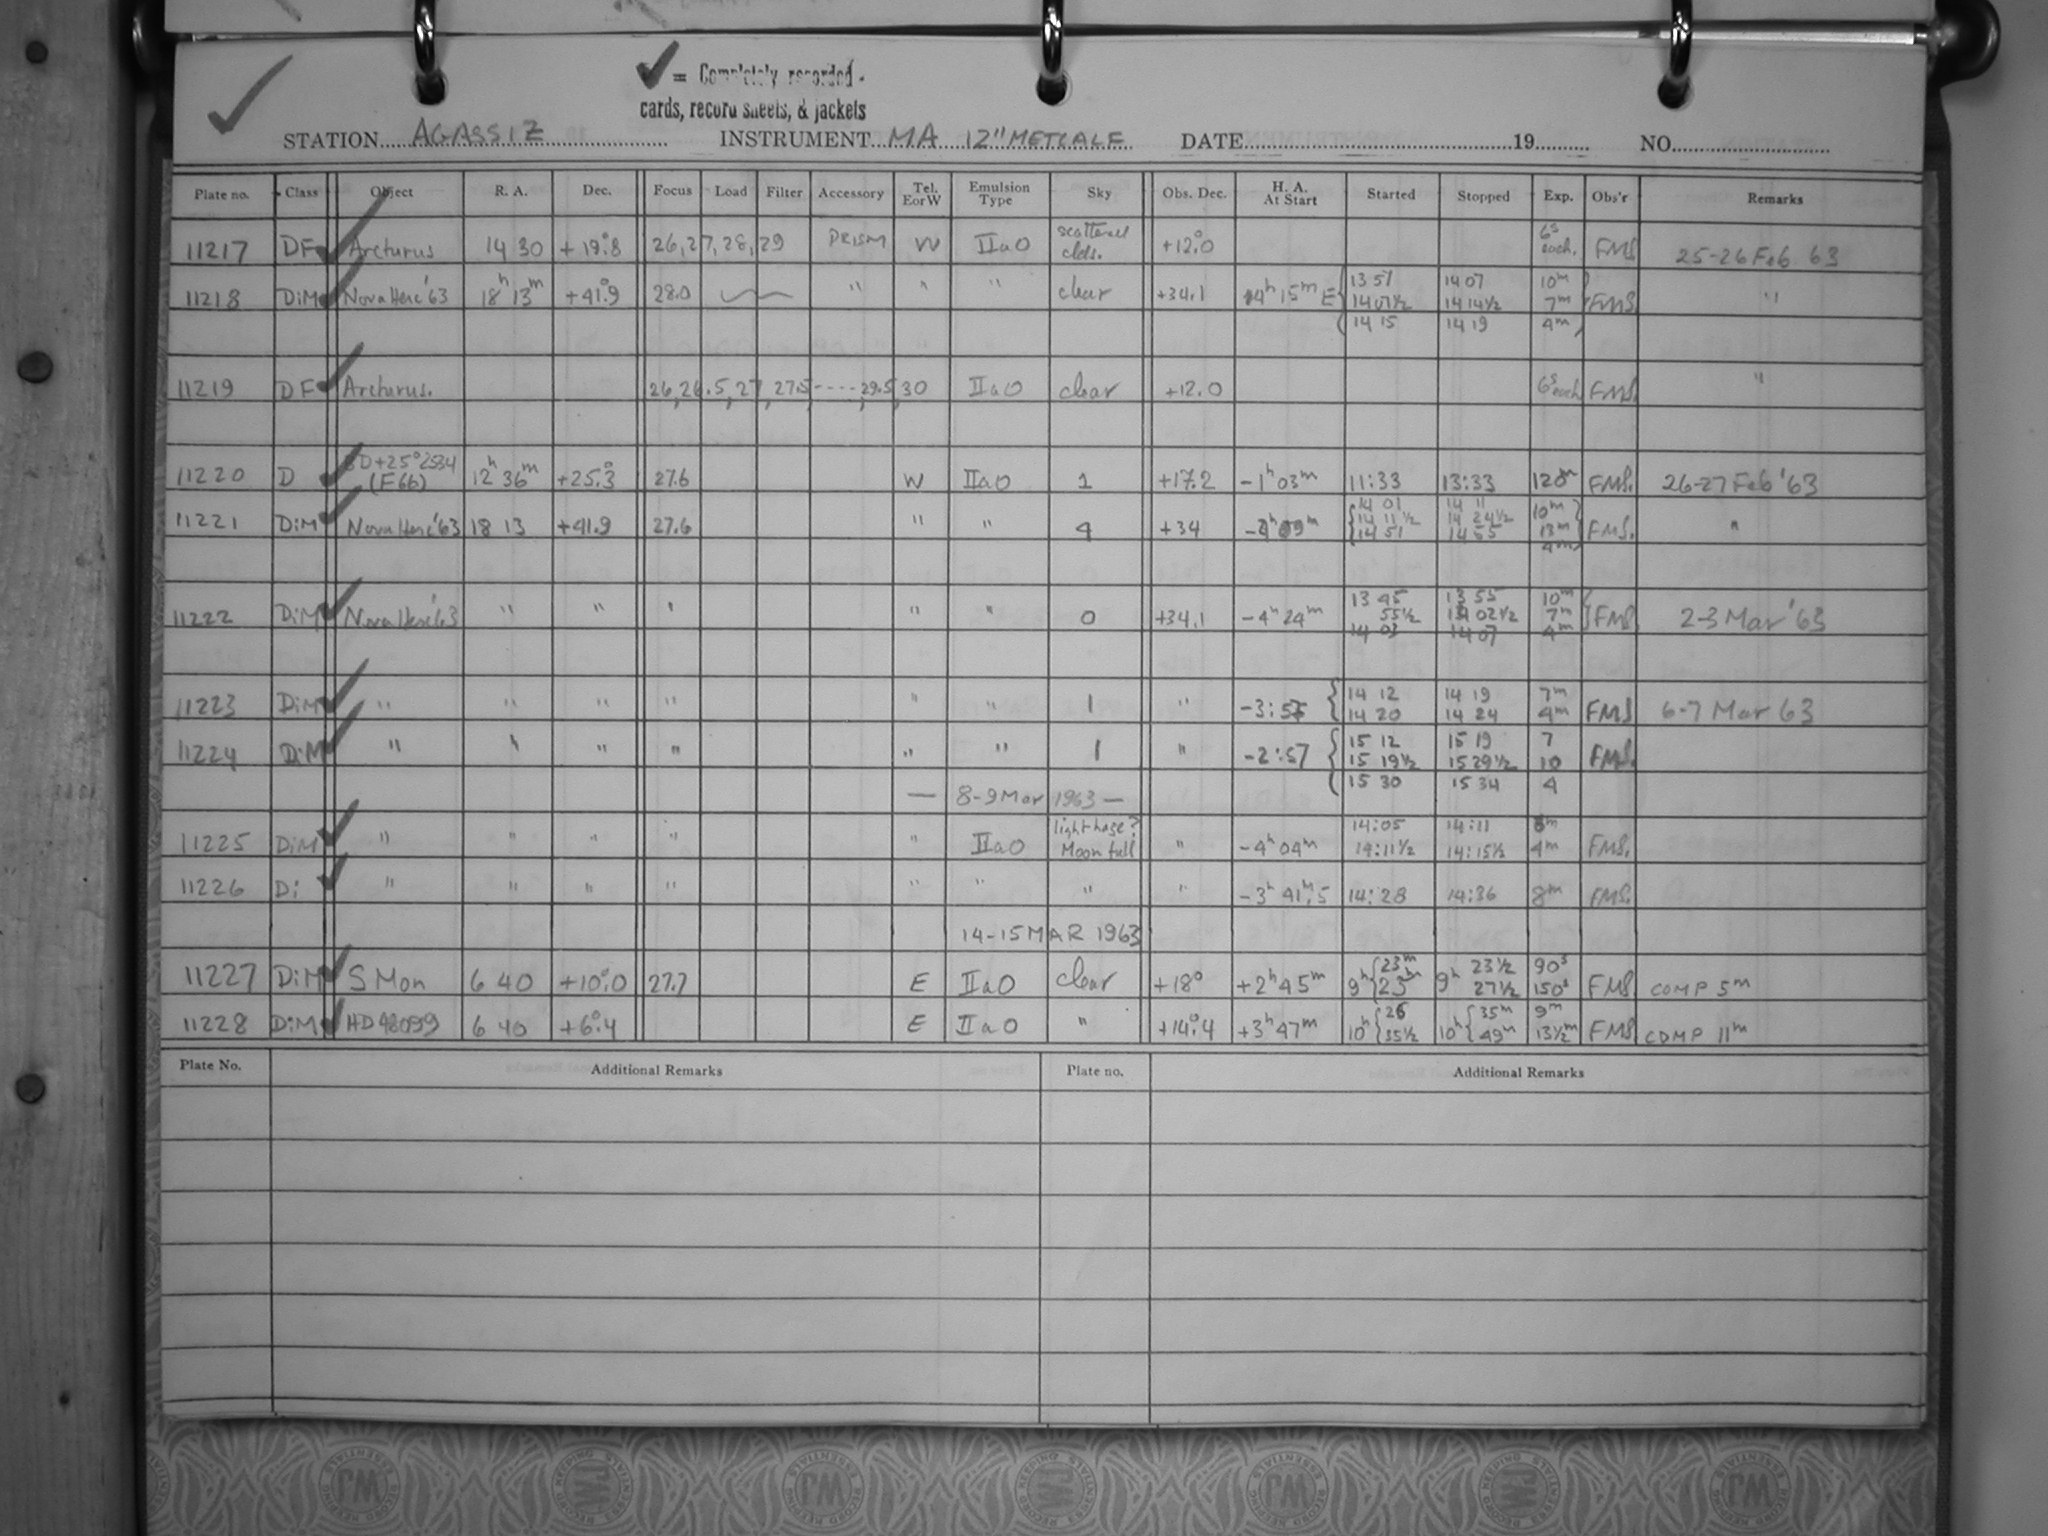 ✓ = Completely recorded -
cards, record sheets, & jackets
STATION AGASSIZ INSTRUMENT MA 12" METCALF DATE 19 NO.
Plate no. Class Object R. A. Dec. Focus Load Filter Accessory Tel. EorW Emulsion Type Sky Obs. Dec. H. A. At Start Started Stopped Exp. Obs'r Remarks
11217 DF Arcturus 14 30 +19°.8 26,27,28,29 PRISM W IIaO scattered clds. +12°.0 6s each. FMS 25-26 Feb 63
11218 DiM Nova Herc '63 18h 13m +41°.9 28.0 " " " clear +34.1 4h 15m E 13 57 14 07 10m FMS "
14 07½ 14 14½ 7m
14 15 14 19 4m
11219 DF Arcturus. 26, 26.5, 27, 27.5 ---- 29.5, 30 IIaO clear +12.0 6s each FMS. "
11220 D BD+25°2534 (F66) 12h 36m +25°.3 27.6 W IIaO 1 +17.2 -1h 03m 11:33 13:33 120m FMS. 26-27 Feb '63
11221 DiM Nova Herc '63 18 13 +41.9 27.6 " " 4 +34 14 01 14 11 10m FMS. "
14 11½ 14 24½ 13m
14 51 14 55 4m
11222 DiM Nova Herc '63 " " " " " 0 +34.1 -4h 24m 13 45 13 55 10m FMS 2-3 Mar '63
55½ 14 02½ 7m
14 03 14 07 4m
11223 DiM " " " " " " 1 " -3:55 14 12 14 19 7m FMS 6-7 Mar 63
14 20 14 24 4m
11224 DiM " " " " " " 1 " -2:57 15 12 15 19 7 FMS.
15 19½ 15 29½ 10
15 30 15 34 4
— 8-9 Mar 1963 —
11225 DiM " " " " " IIaO light haze? Moon full " -4h 04m 14:05 14:11 6m FMS.
14:11½ 14:15½ 4m
11226 Di " " " " " " " " -3h 41m.5 14:28 14:36 8m FMS.
14-15 MAR 1963
11227 DiM S Mon 6 40 +10°.0 27.7 E IIaO clear +18° +2h 45m 9h 23m 9h 23½ 90s FMS COMP 5m
25m 27½ 150s
11228 DiM HD 48099 6 40 +6°.4 E IIaO " +14°.4 +3h 47m 10h 26 10h 35m 9m FMS COMP 11m
35½ 49m 13½m
Plate No. Additional Remarks Plate no. Additional Remarks